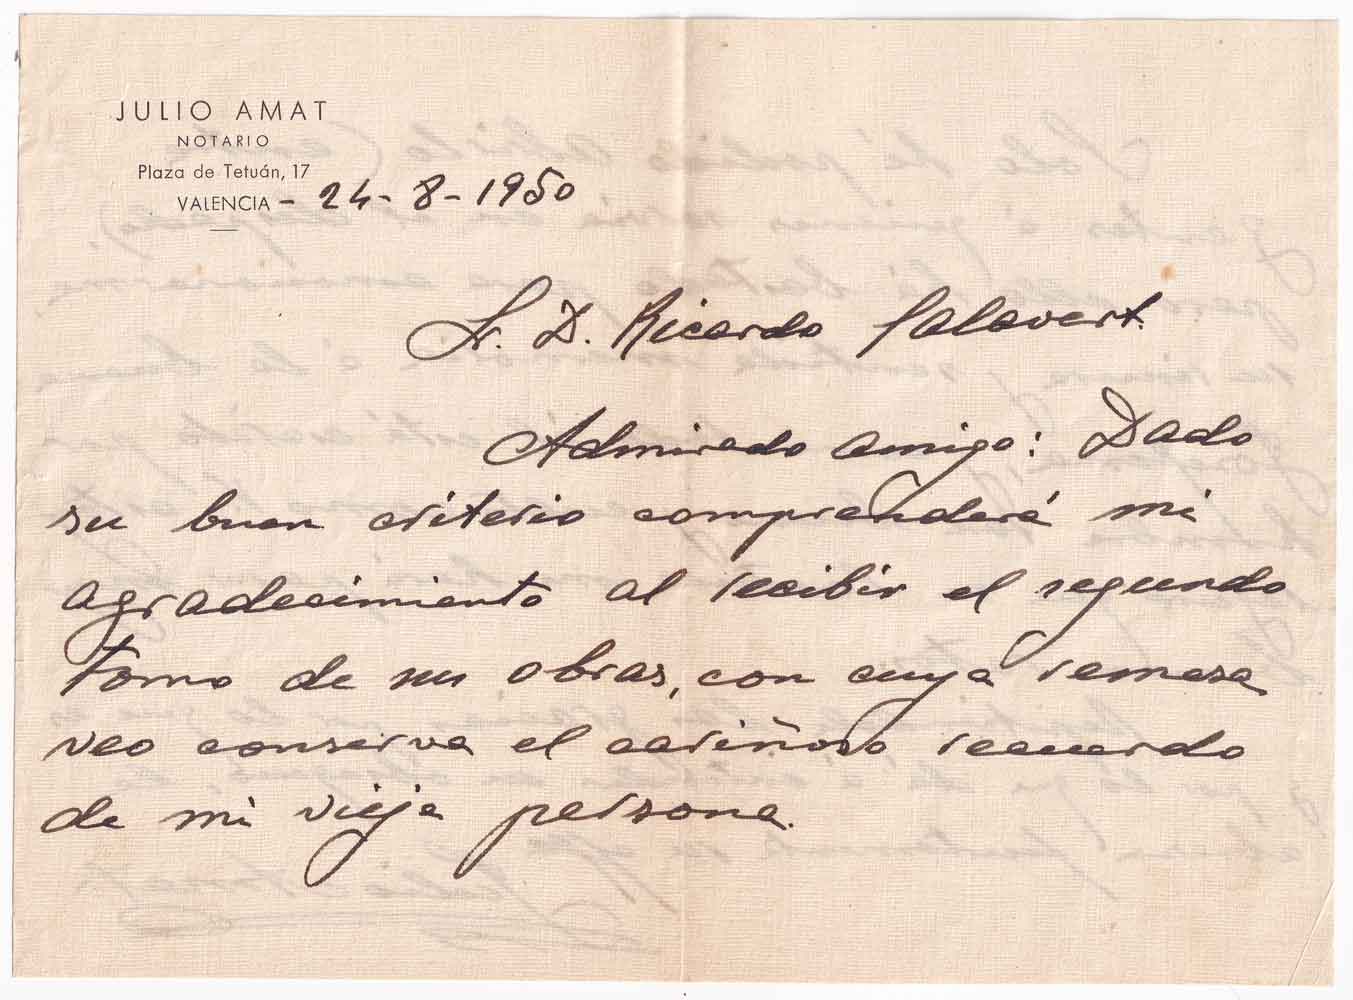 JULIO AMAT
NOTARIO
Plaza de Tetuán, 17
VALENCIA - 24 - 8 - 1950
Sr. D. Ricardo Salavert.
Admirado amigo: Dado
su buen criterio comprenderá mi
agradecimiento al recibir el segundo
tomo de sus obras, con cuya remesa
veo conserva el cariñoso recuerdo
de mi vieja persona.